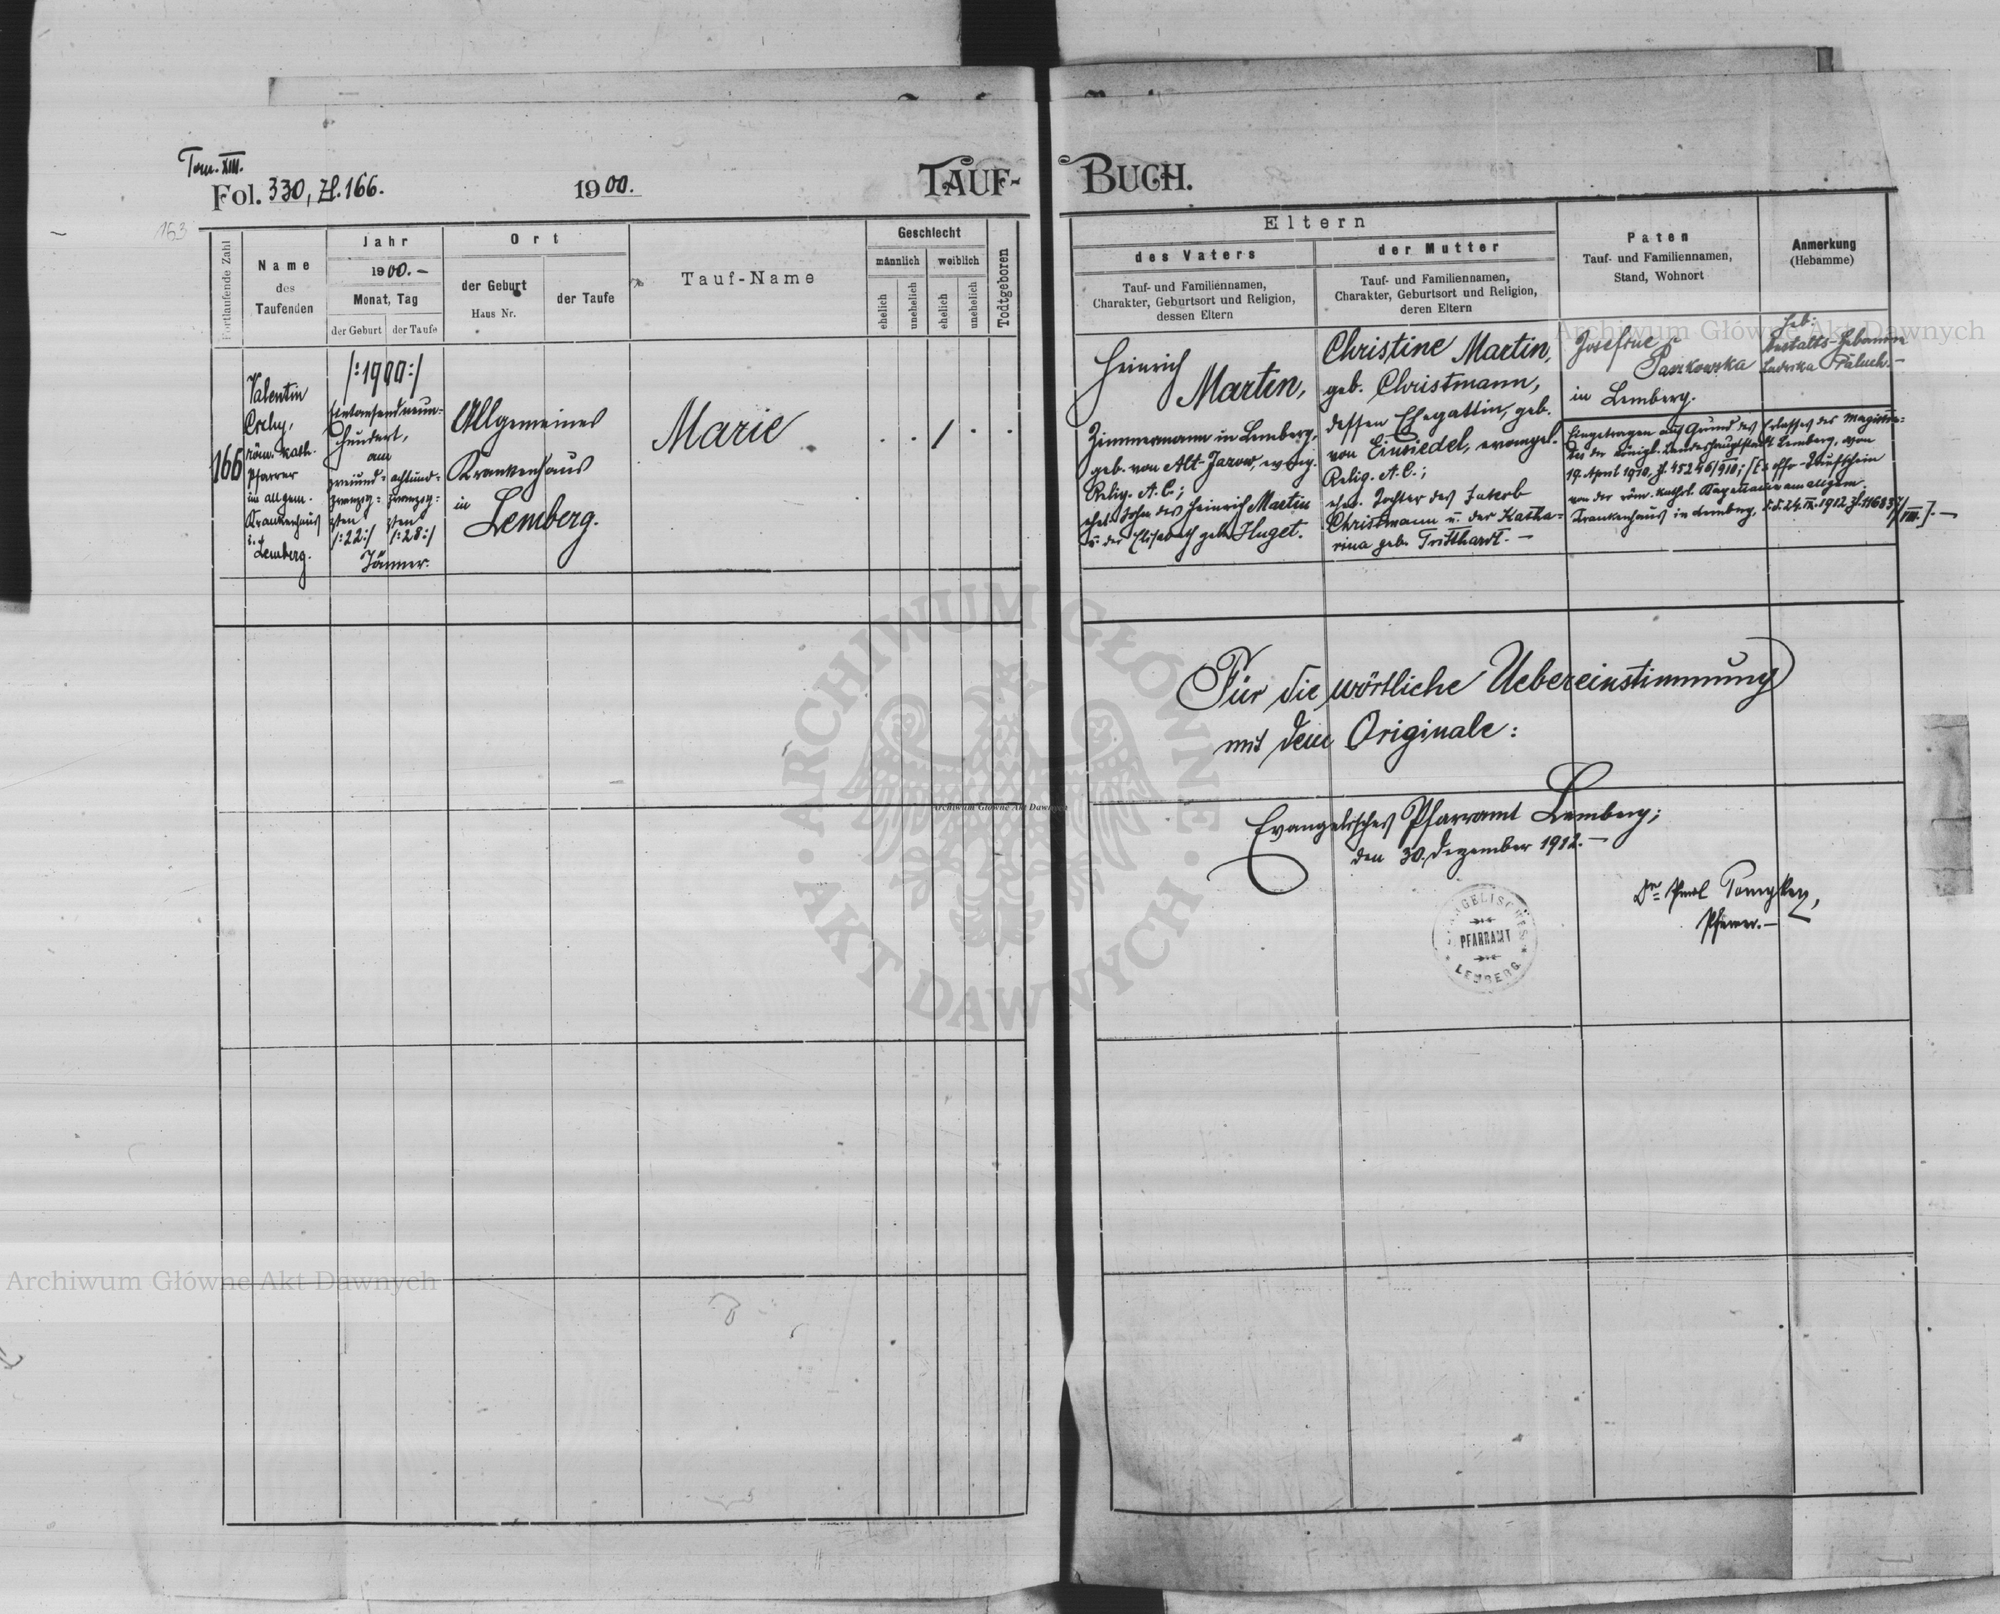 Tom. XIII.
Fol. 330, Zl. 166.
1900.
TAUF-BUCH.
163
Fortlaufende Zahl
Name
des
Taufenden
Jahr
1900.-
Monat, Tag
der Geburt
der Taufe
Ort
der Geburt
Haus Nr.
der Taufe
Tauf-Name
Geschlecht
männlich
weiblich
ehelich
unehelich
ehelich
unehelich
Todtgeboren
Eltern
des Vaters
Tauf- und Familiennamen,
Charakter, Geburtsort und Religion,
dessen Eltern
der Mutter
Tauf- und Familiennamen,
Charakter, Geburtsort und Religion,
deren Eltern
Paten
Tauf- und Familiennamen,
Stand, Wohnort
Anmerkung
(Hebamme)
166
Valentin
röm. kath.
Pfarrer
im allgem.
Krankenhaus
i.
Lemberg.
/:1900:/
Eintausendneun-
hundert,
am
zweiund-
zwanzig-
sten
/:22:/
achtund-
zwanzig-
sten
/:28:/
Jänner.
Allgemeines
Krankenhaus
in
Lemberg.
Marie
/
Heinrich
Martin,
Zimmermann in Lemberg,
geb. von Alt-Jazow, evang.
Relig. A. C.;
ehel. Sohn des Heinrich Martin
u. der Elisabeth geb. Huget.
Christine Martin,
geb. Christmann,
dessen Ehegattin, geb.
von Einsiedel, evangel.
Relig. A. C.;
ehel. Tochter des Jakob
Christmann u. der Katha-
rina geb. Tritthardt. -
Josefine
Paszkowska
in Lemberg.
Anstalts-Hebamme
Ludwika Paluch.-
Eingetragen auf Grund des Erlasses des Magistra-
tes der königl. Landeshauptstadt Lemberg, vom
19. April 1910, Zl. 45246/910; [Ex offo-Taufschein
von der röm. kathol. Kapellanie am allgem.
Krankenhaus in Lemberg, d.d. 24. IX. 1912 Zl. 116837/VIII.]. -
Für die wörtliche Uebereinstimmung
mit dem Originale:
Evangelisches Pfarramt Lemberg;
den 30. Dezember 1912. -
Pfarrer. -
EVANGELISCHES
PFARRAMT
LEMBERG
Archiwum Główne Akt Dawnych
ARCHIWUM GŁÓWNE AKT DAWNYCH
Archiwum Główne Akt Dawnych
Archiwum Główne Akt Dawnych